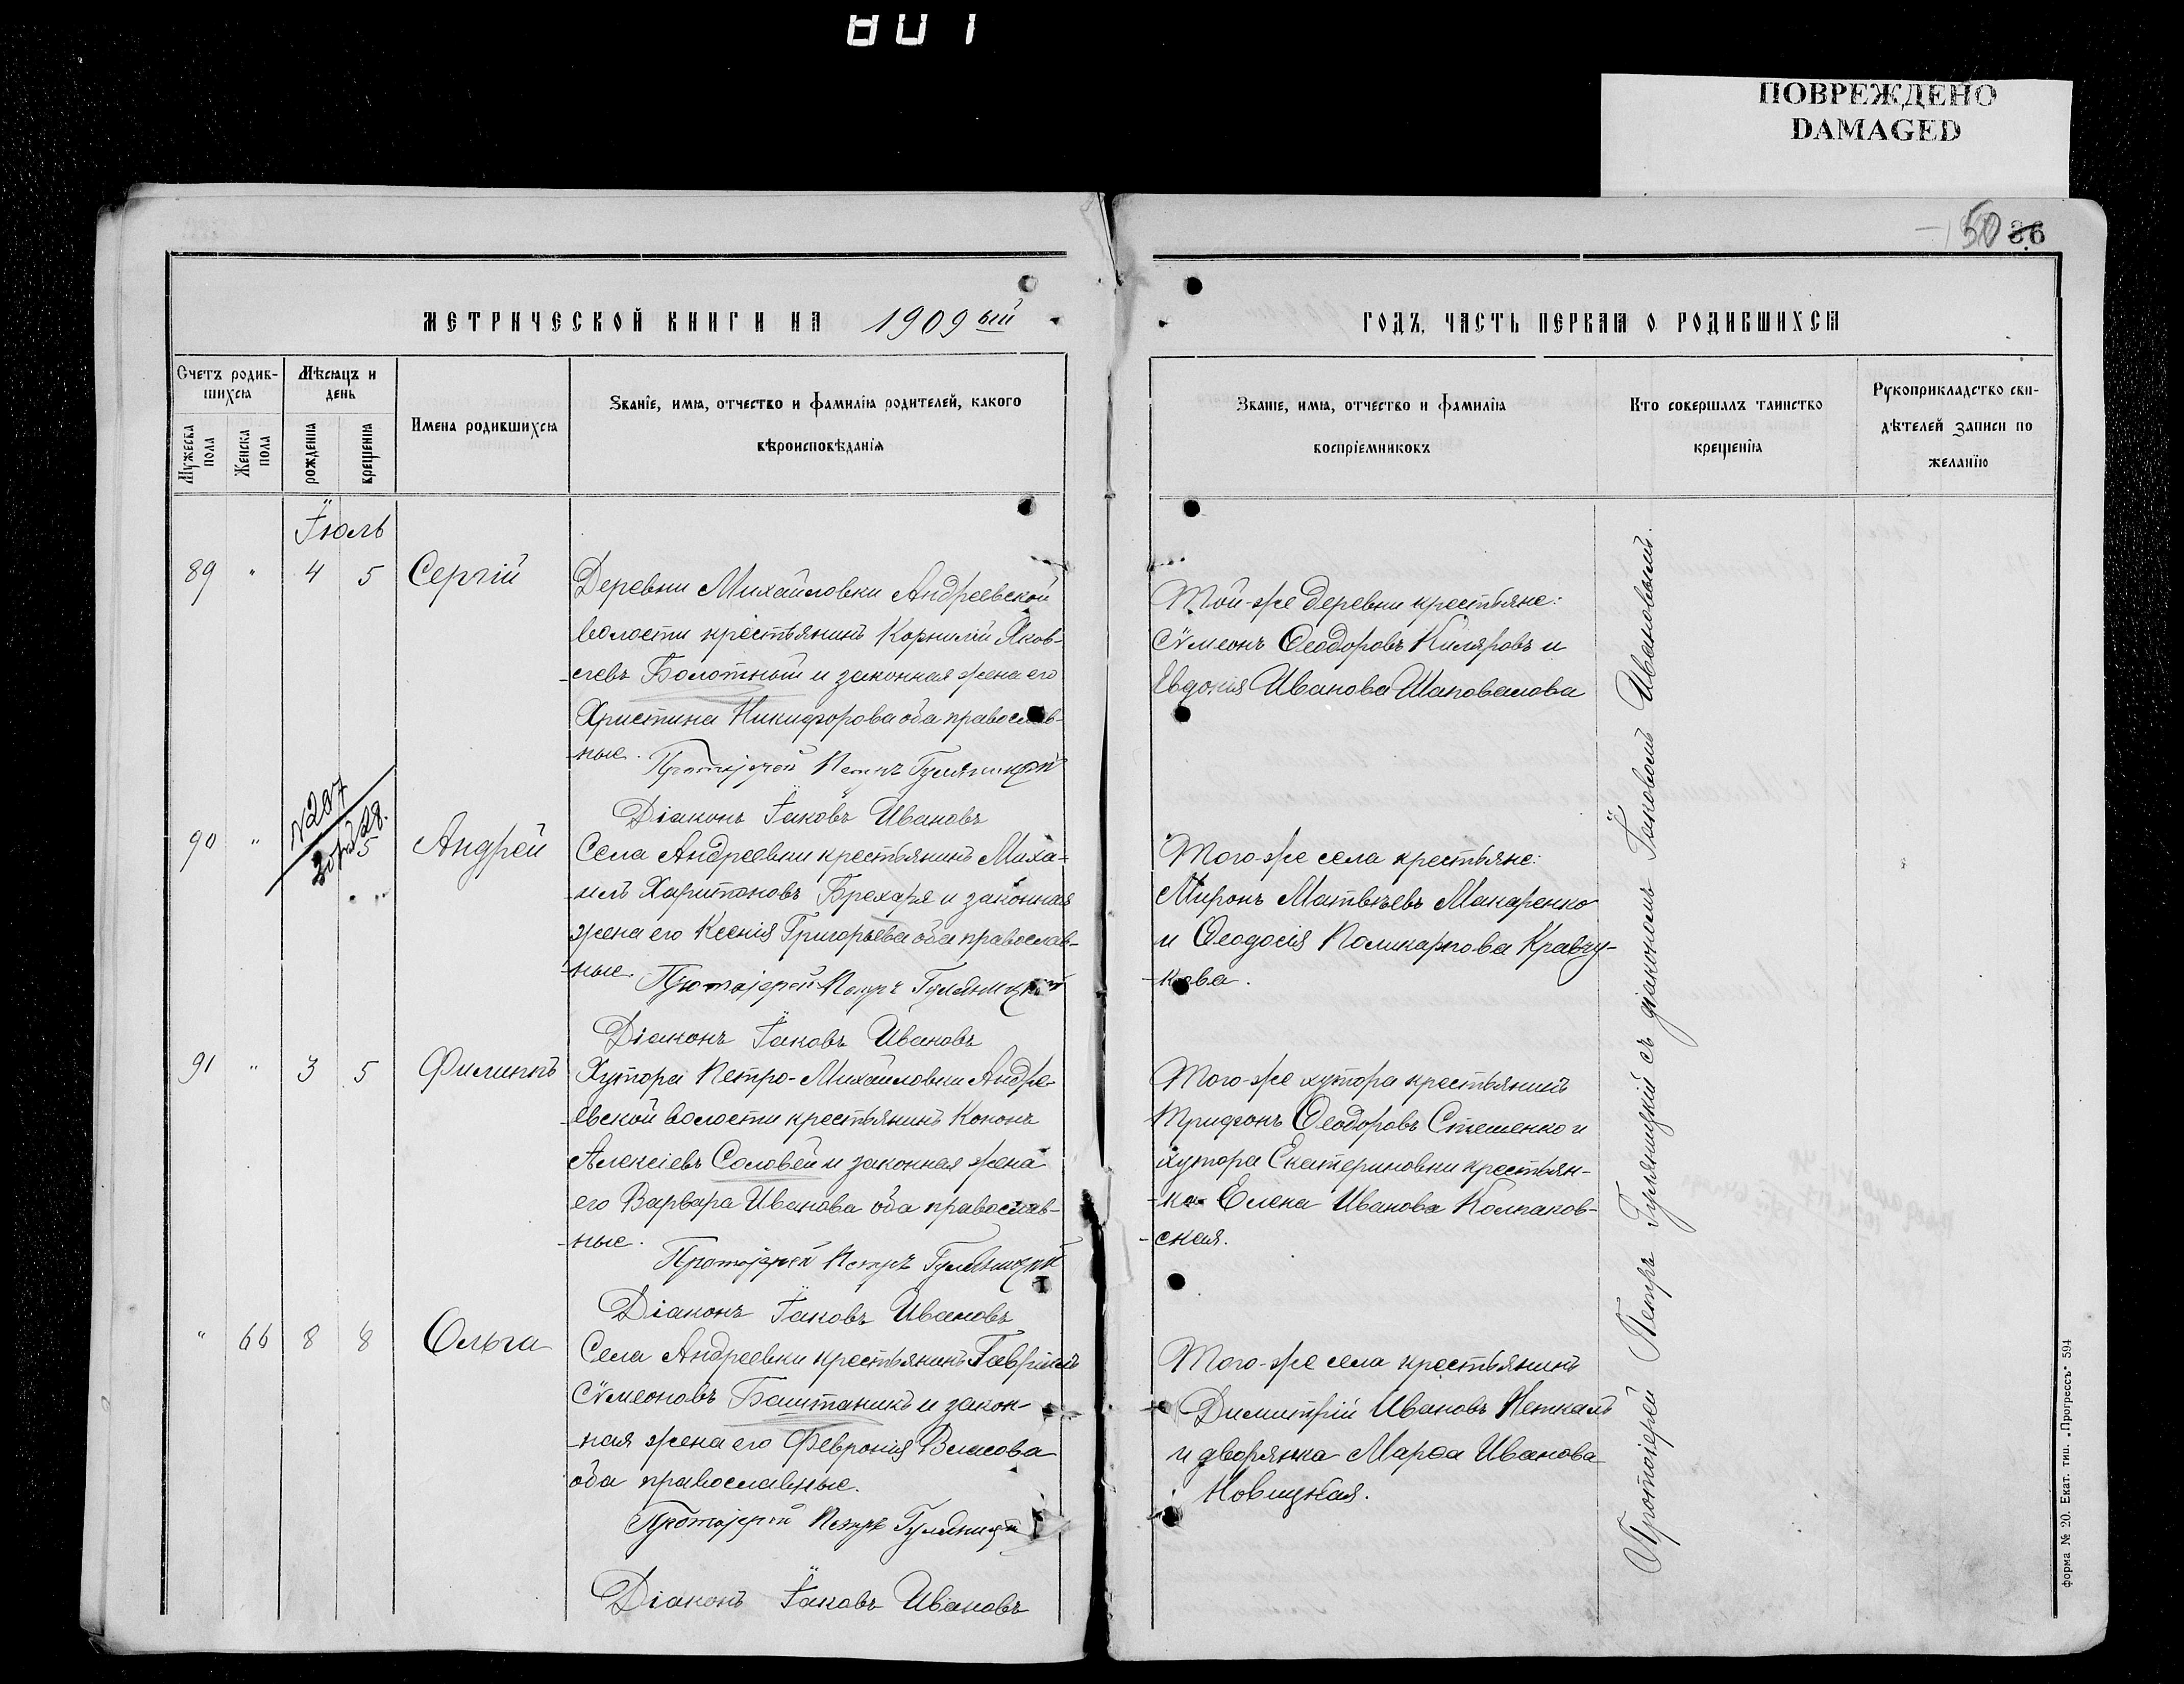 801
ПОВРЕЖДЕНО
DAMAGED
50 36
МЕТРИЧЕСКОЙ КНИГИ НА 1909 ый
ГОДЪ, ЧАСТЬ ПЕРВАЯ О РОДИВШИХСЯ
Счетъ родив-
шихся
Мѣсяцъ и
день
Мужеска
пола
Женска
пола
рожденія
крещенія
Имена родившихся
Званіе, имя, отчество и фамилія родителей, какого
вѣроисповѣданія
Званіе, имя, отчество и фамилія
воспріемниковъ
Кто совершалъ таинство
крещенія
Рукоприкладство сви-
дѣтелей записи по
желанію
Іюль
89 " 4 5 Сергій
Деревни Михайловки Андреевской
волости крестьянинъ Корнилій Яков-
левъ Болотный и законная жена его
Христина Никифорова оба православ-
ные.
Протоіерей Петръ Гуляницкій
Діаконъ Іаковъ Ивановъ
Той-же деревни крестьяне:
Сѵмеонъ Ѳеодоровъ Киляровъ и
Евдокія Иванова Шаповалова
90 " 5 Андрей
№207
Села Андреевки крестьянинъ Миха-
илъ Харитоновъ Брехаря и законная
жена его Ксенія Григорьева оба православ-
ные.
Протоіерей Петръ Гуляницкій
Діаконъ Іаковъ Ивановъ
Того-же села крестьяне:
Миронъ Матвѣевъ Макаренко
и Ѳеодосія Поликарпова Кравчу-
кова.
91 " 3 5 Филиппъ
Хутора Петро-Михайловки Андре-
евской волости крестьянинъ Кононъ
Алексіевъ Соловей и законная жена
его Варвара Иванова оба православ-
ные.
Протоіерей Петръ Гуляницкій
Діаконъ Іаковъ Ивановъ
Того-же хутора крестьянинъ
Трифонъ Ѳеодоровъ Стешенко и
хутора Екатериновки крестьян-
ка Елена Иванова Колпаков-
ская.
" 66 8 8 Ольга
Села Андреевки крестьянинъ Гавріилъ
Сѵмеоновъ Баштаникъ и закон-
ная жена его Февронія Власова
оба православные.
Протоіерей Петръ Гуляницкій
Діаконъ Іаковъ Ивановъ
Того-же села крестьянинъ
Димитрій Ивановъ Неткалъ
и дворянка Марѳа Иванова
Новицкая.
Протоіерей Петръ Гуляницкій съ діакономъ Іаковомъ Ивановымъ.
форма № 20. Екат. тип. „Прогрессъ" 594